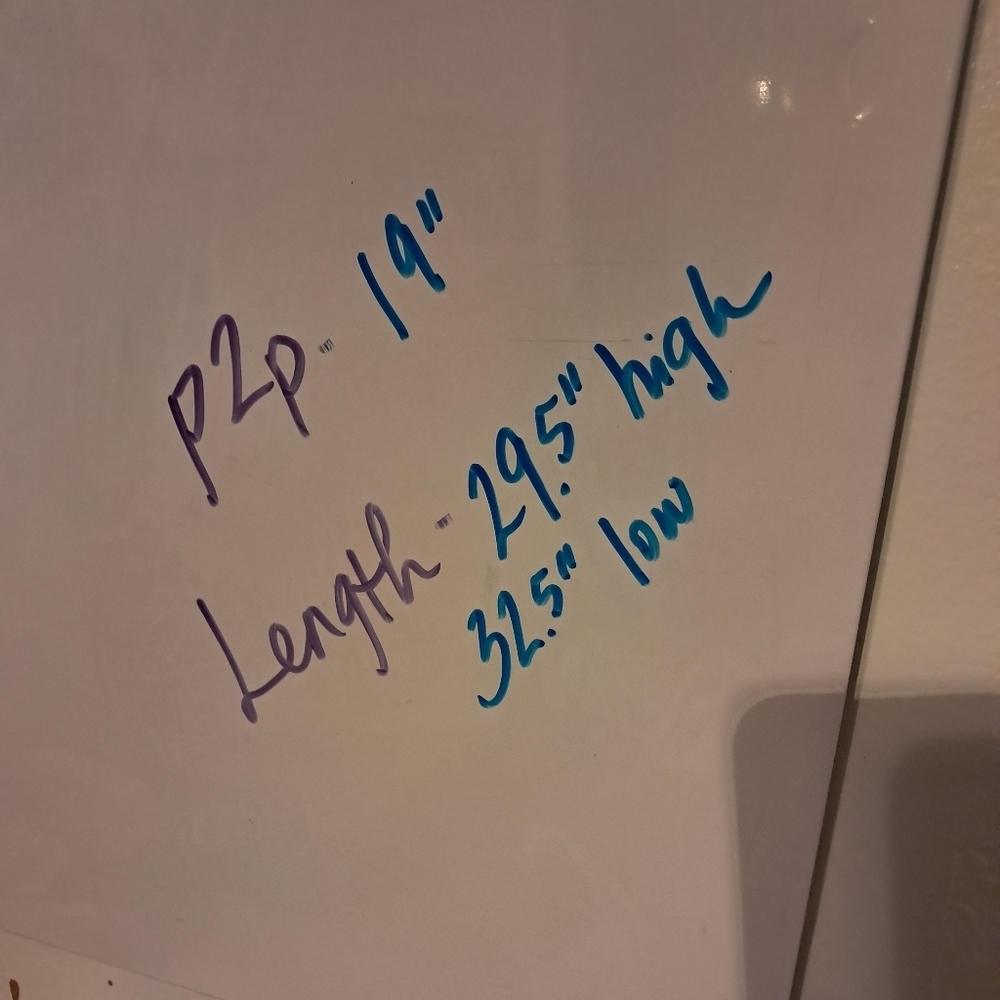 P2p- 19"
Length- 29.5" high
32.5" low